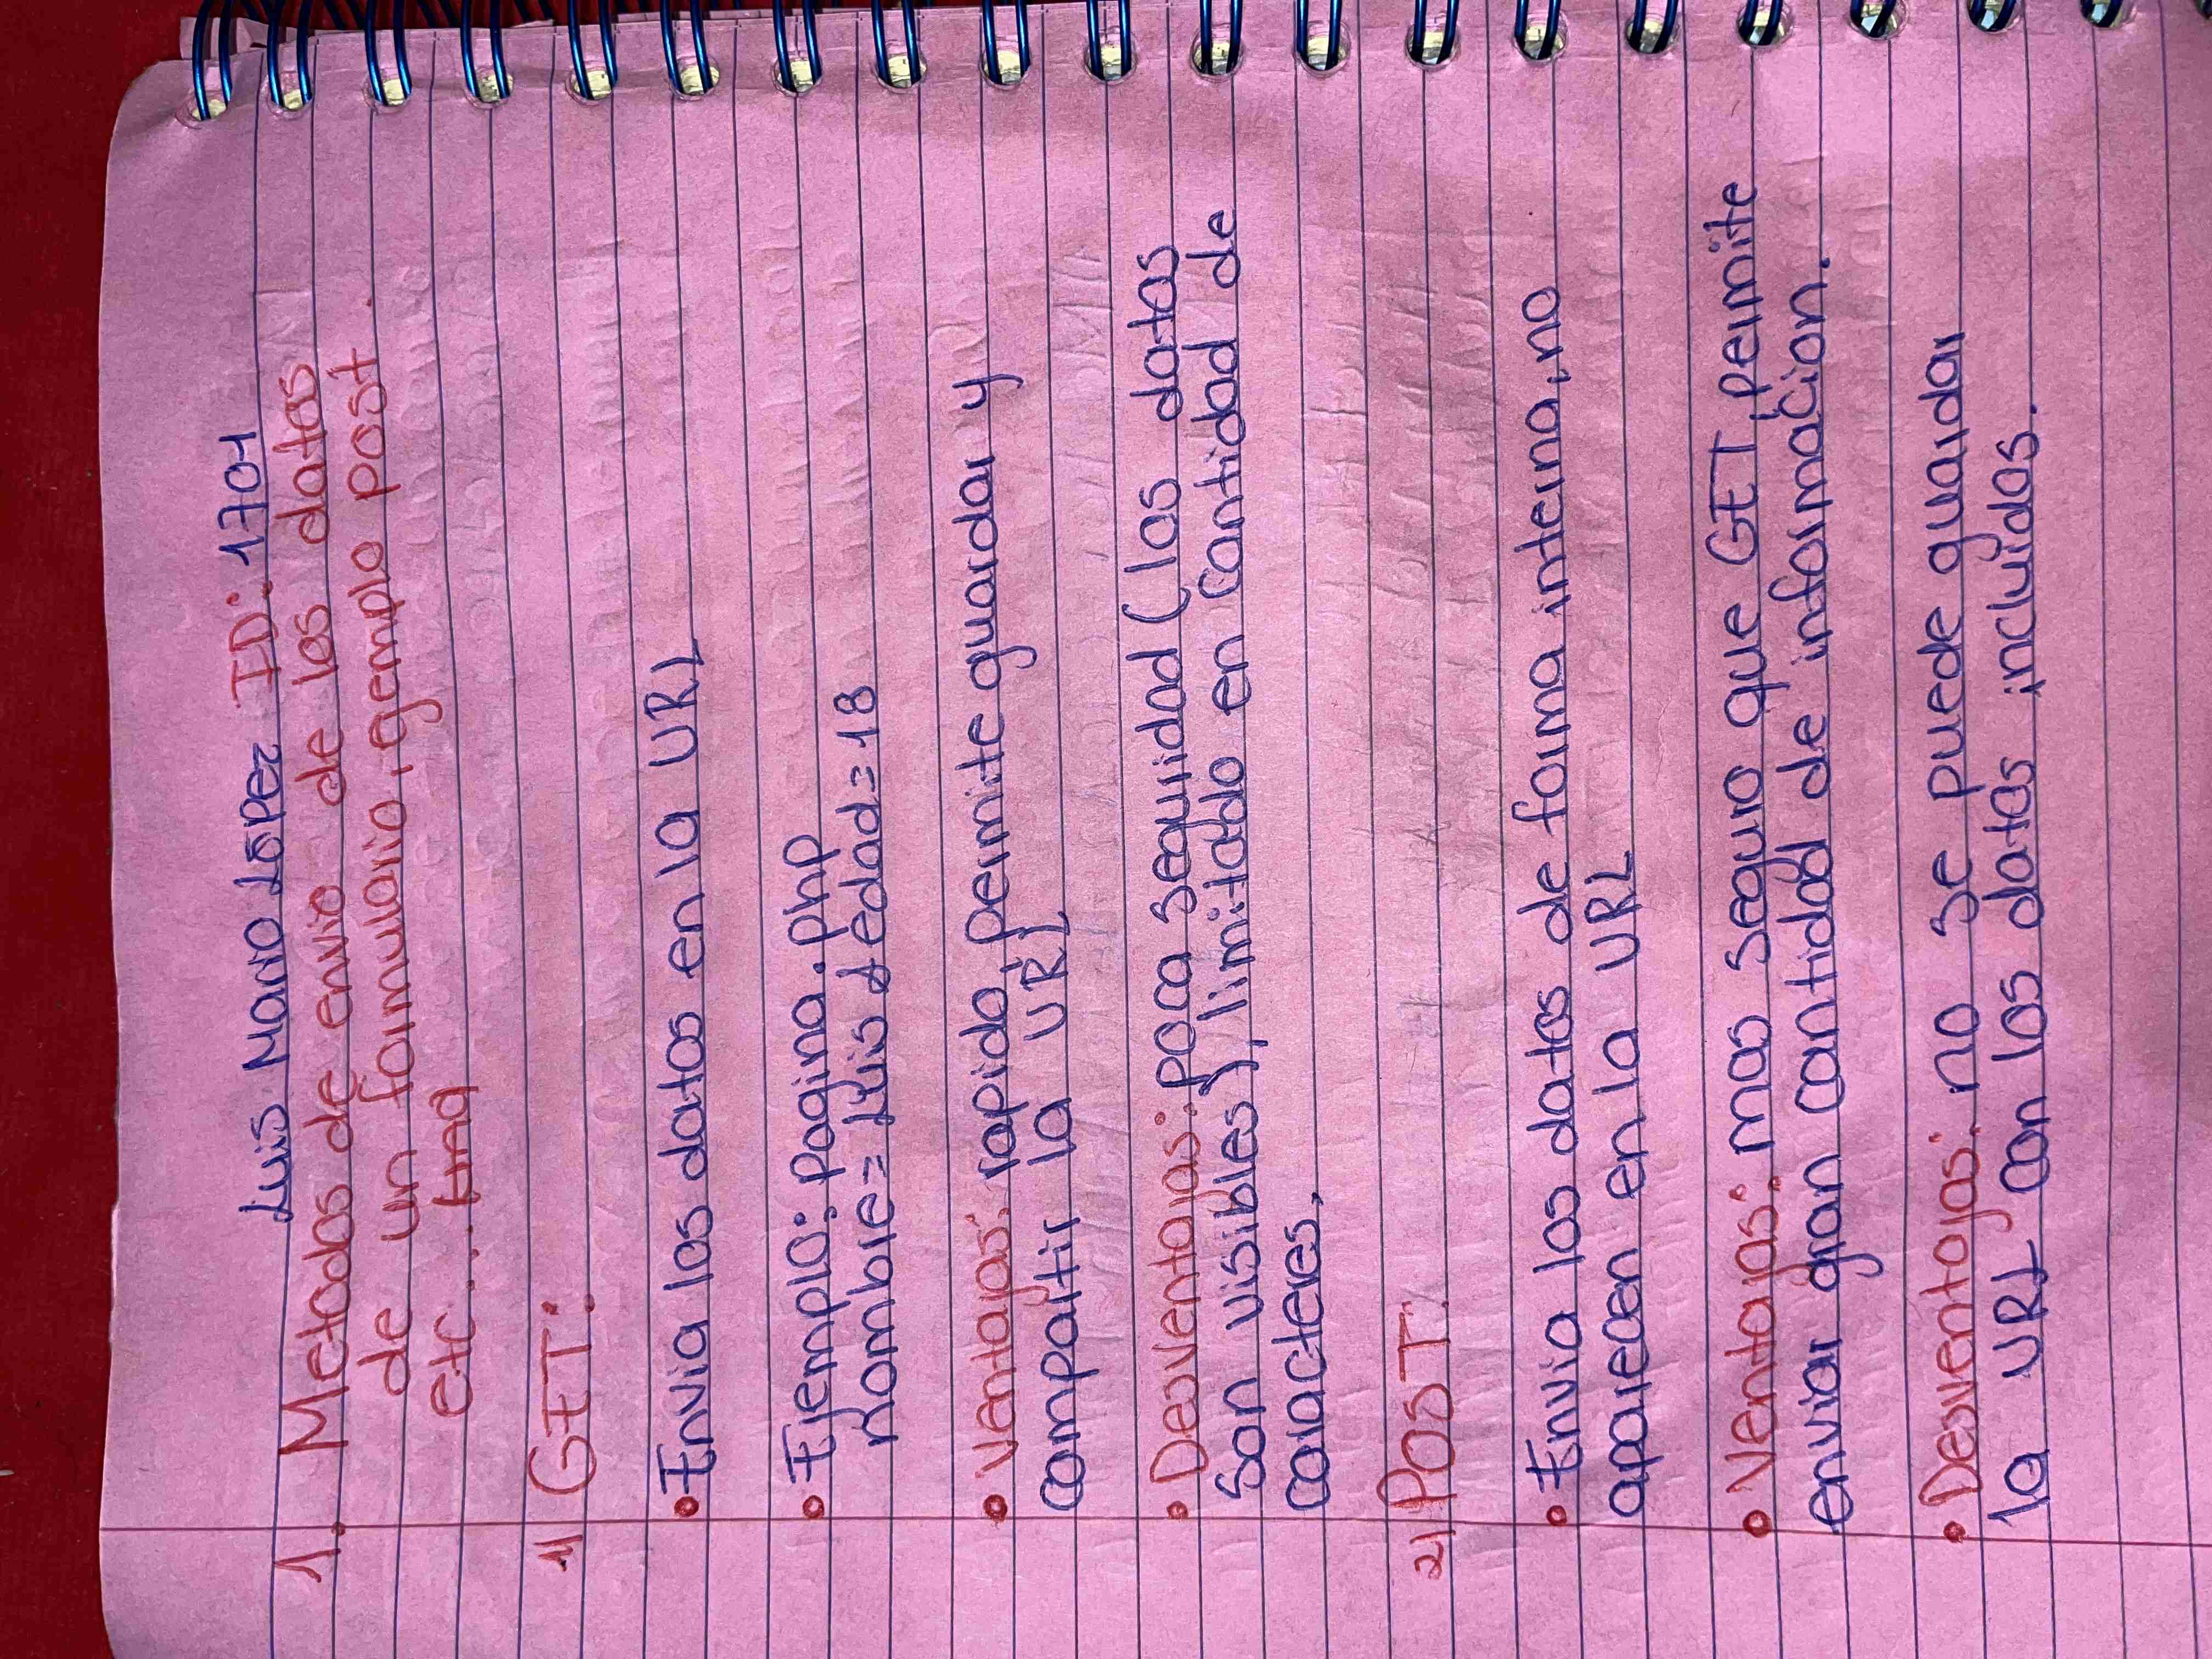 Luis Mario López ID: 1701
1. Metodos de envio de los datos
de un formulario, gemplo post
etc...
1) GET:
• Envia los datos en la URL
• Ejemplo: pagina.php
nombre=Luis & edad=18
• Ventajas: rapido, permite guardar y
compartir la URL
• Desventajas: poca seguridad (los datos
son visibles), limitado en cantidad de
caracteres,
2) POST:
• Envia los datos de forma interna, no
aparecen en la URL
• Ventajas: mas seguro que GET, permite
enviar gran cantidad de informacion.
• Desventajas: no se puede guardar
la URL con los datos incluidos.